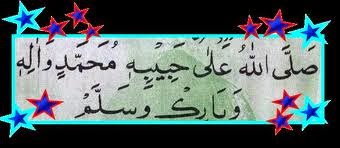 صَلَّى اللهُ عَلٰى حَبِيْبِهٖ مُحَمَّدٍ وَّاٰلِهٖ
وَبَارِكْ وَسَلَّمْ